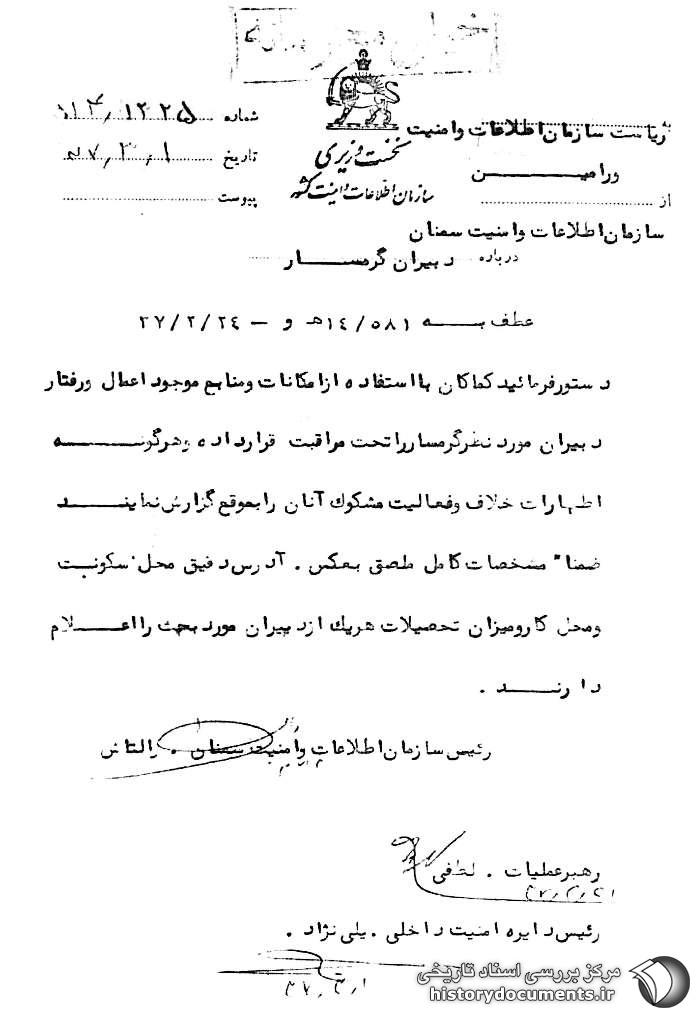 شماره ۱۲۲۵/ ۱۴ه
تاریخ ۴۷/۳/۱
پیوست
نخست وزیری
سازمان اطلاعات و امنیت کشور
به ریاست سازمان اطلاعات و امنیت
ورامین
از
سازمان اطلاعات و امنیت سمنان
درباره دبیران گرمسار
عطف به ۱۴/۵۸۱ه و - ۲۷/۲/۲٤
دستور فرمائید کماکان با استفاده از امکانات و منابع موجود اعمال و رفتار
دبیران مورد نظر گرمسار را تحت مراقبت قرار داده و هرگونه
اظهارات خلاف و فعالیت مشکوک آنان را بموقع گزارش نمایند
ضمنا" مشخصات کامل ملصق بعکس . آدرس دقیق محل سکونت
ومحل کار ومیزان تحصیلات هریک از دبیران مورد بحث را اعلام
دارند .
رئیس سازمان اطلاعات وامنیت سمنان .
رهبر عملیات . لطفی
رئیس دایره امنیت داخلی . یلی نژاد .
۴۷/۳/۱
مرکز بررسی اسناد تاریخی
historydocuments.ir